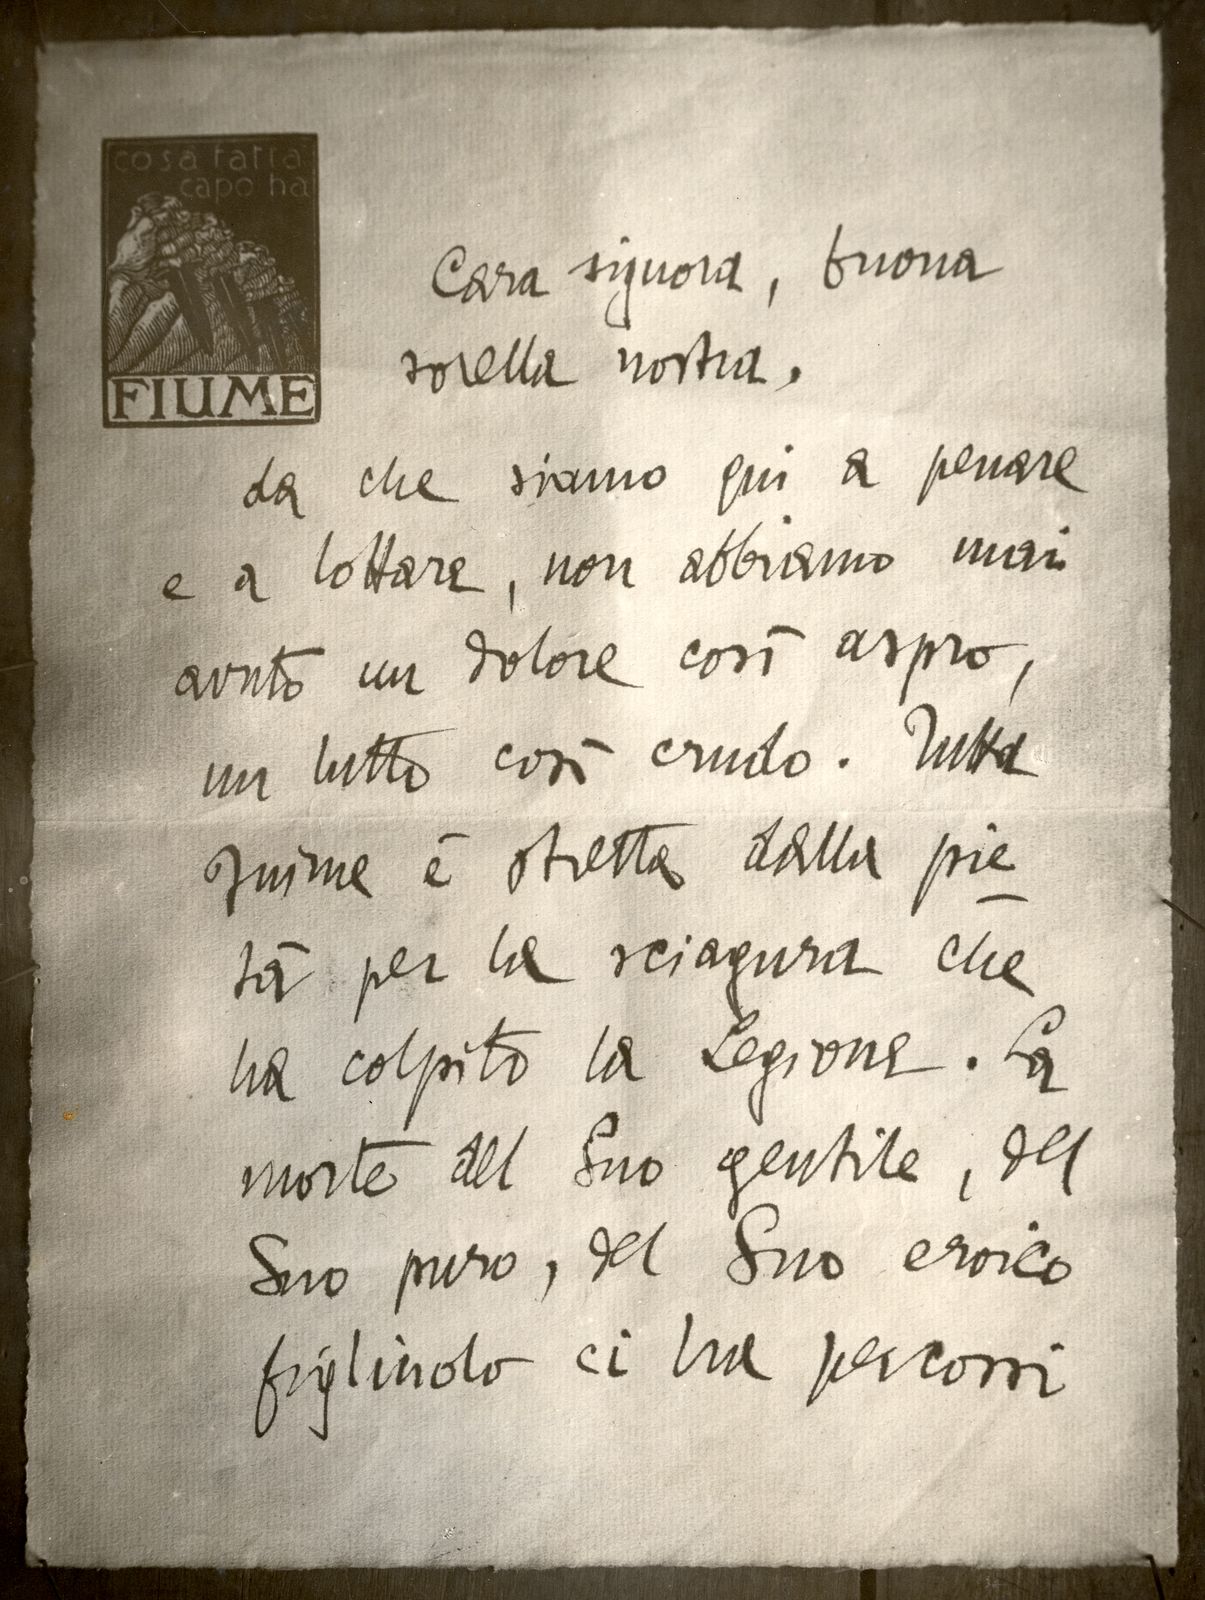 cosa fatta
capo ha
FIUME
Cara signora, buona
sorella nostra,
da che siamo qui a penare
e a lottare, non abbiamo mai
avuto un dolore così aspro,
un lutto così crudo. Tutta
Fiume è stretta dalla pie
tà per la sciagura che
ha colpito la Legione. La
morte del Suo gentile, del
Suo puro, del Suo eroico
figliuolo ci ha percossi